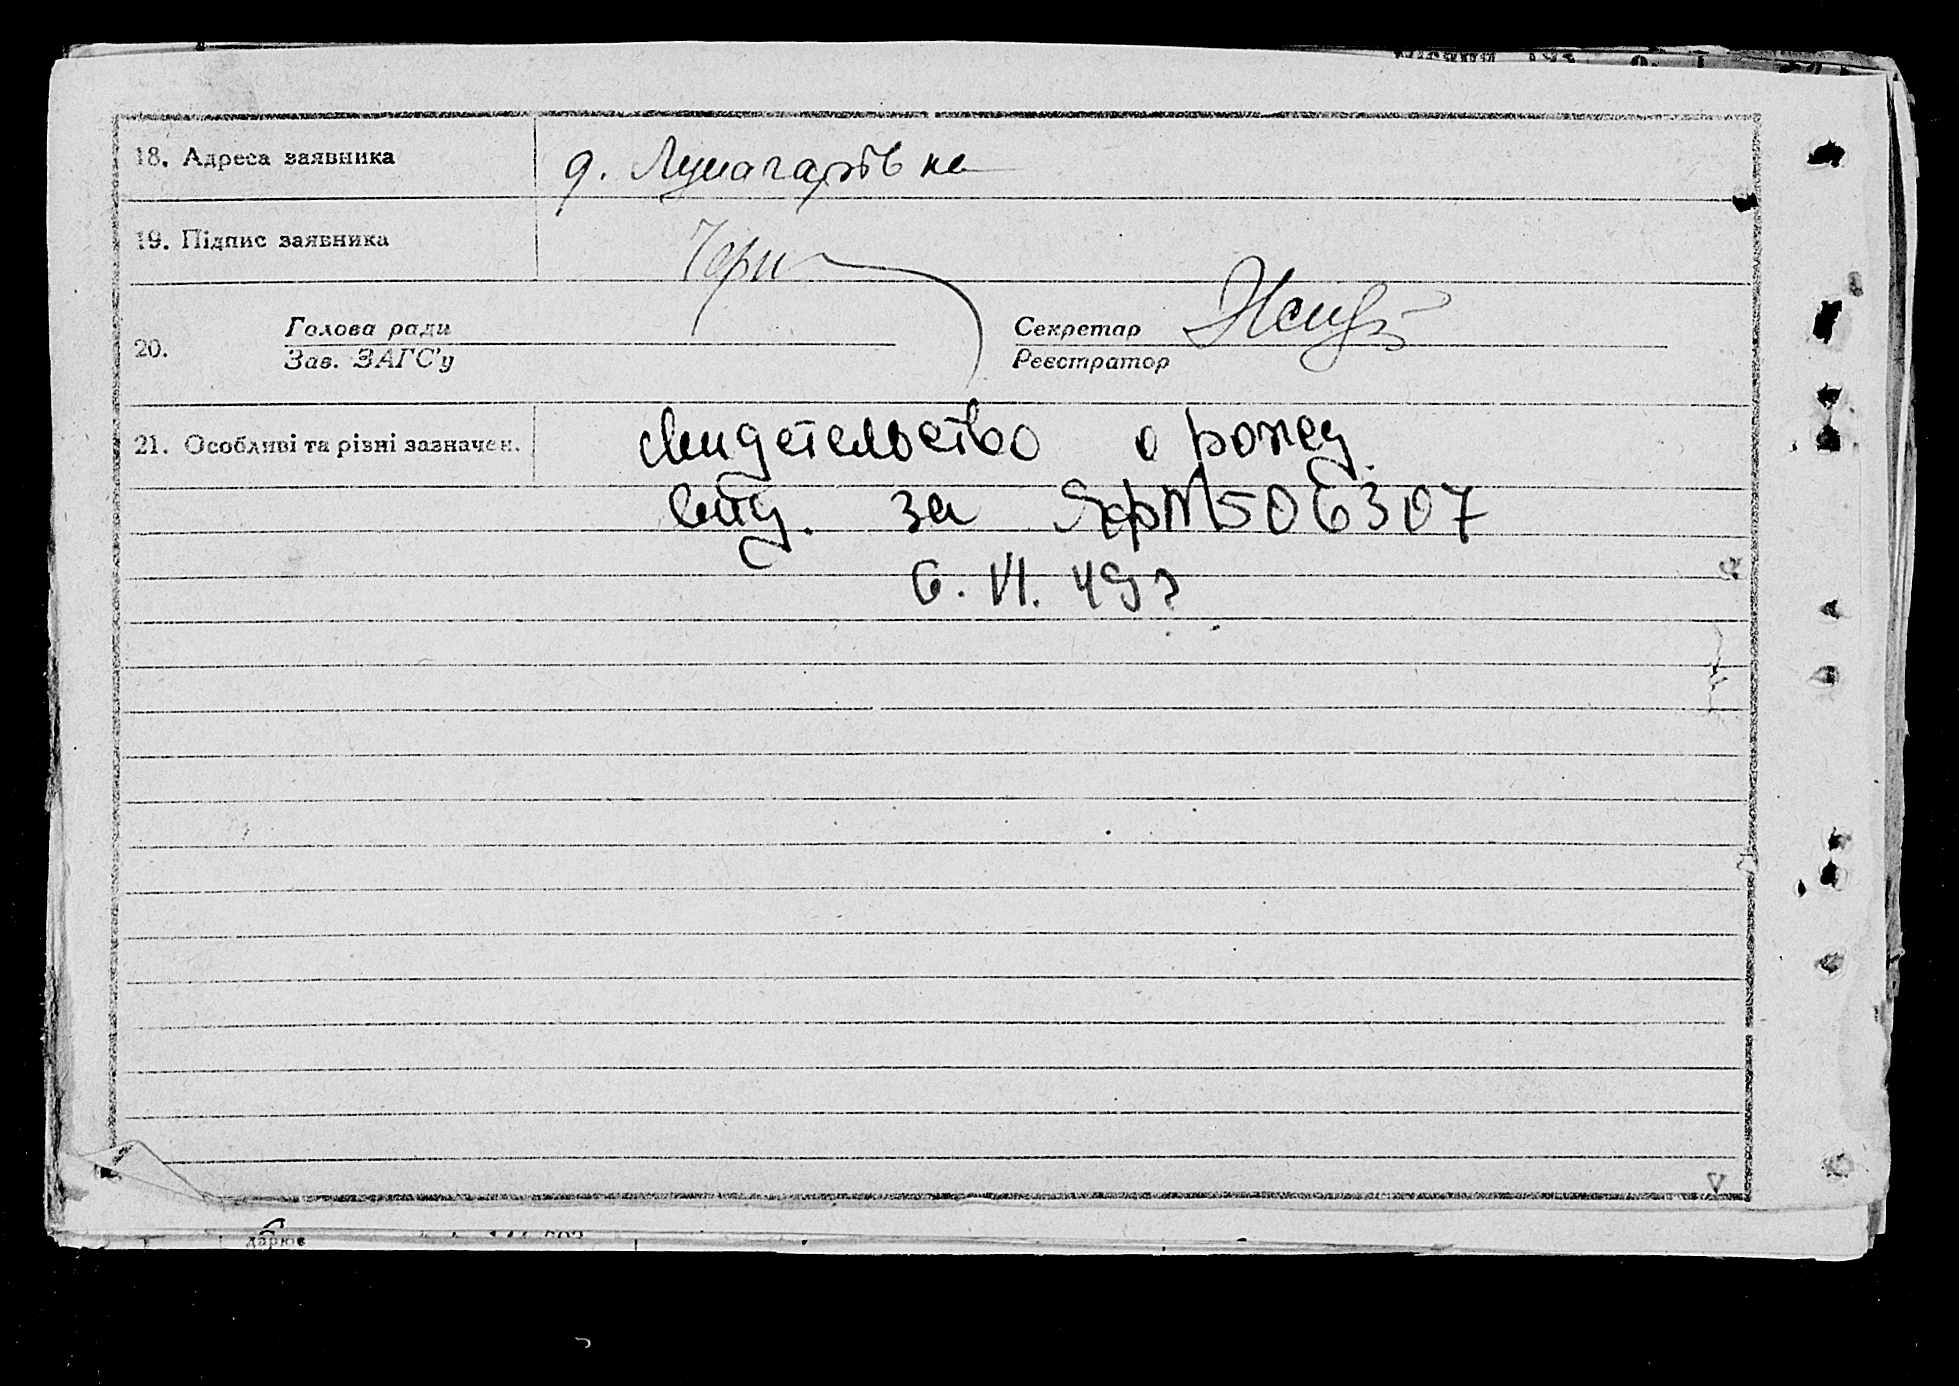 18. Адреса заявника
д.
19. Підпис заявника
20. Голова ради
Зав. ЗАГС'у
Секретар
Реєстратор
21. Особливі та різні зазначен.
свидетельство о рожд.
выд. за 506307
6. VI. 49 г